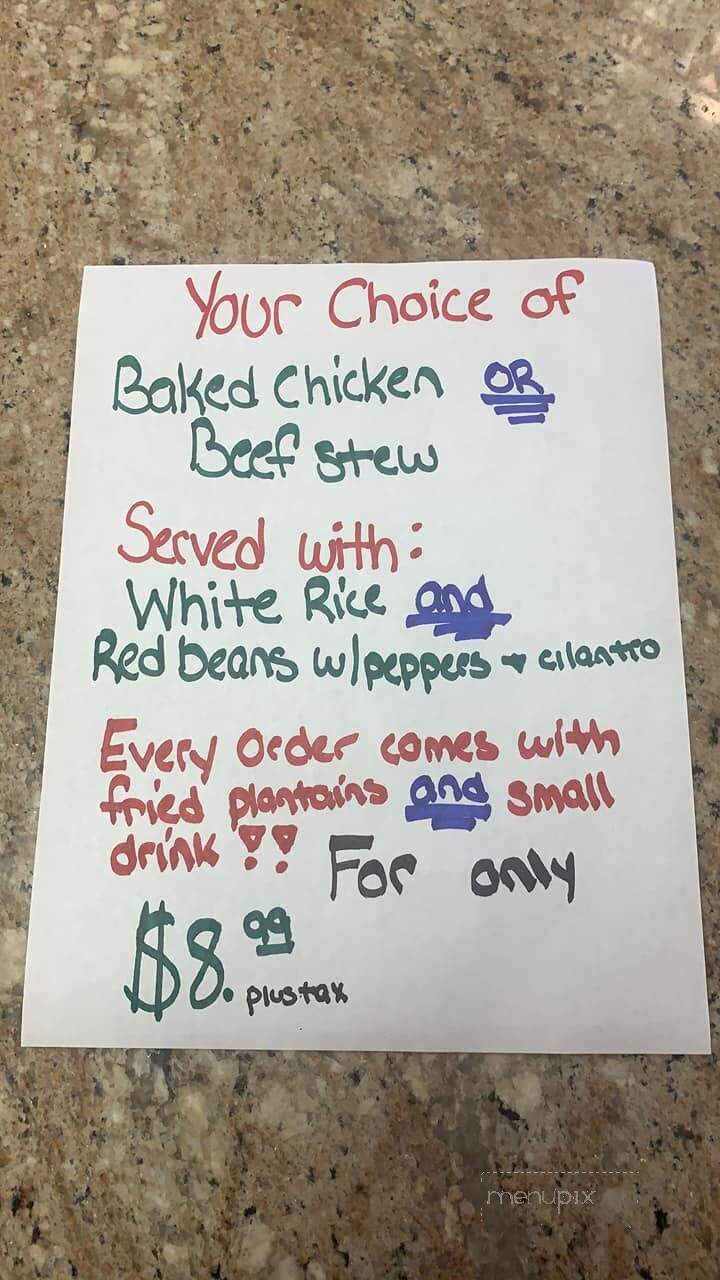 Your Choice of
Baked Chicken OR
Beef stew
Served with:
White Rice and
Red beans w/peppers + cilantro
Every order comes with
fried plantains and small
drink !! For only
$8.99 plus tax
menupix